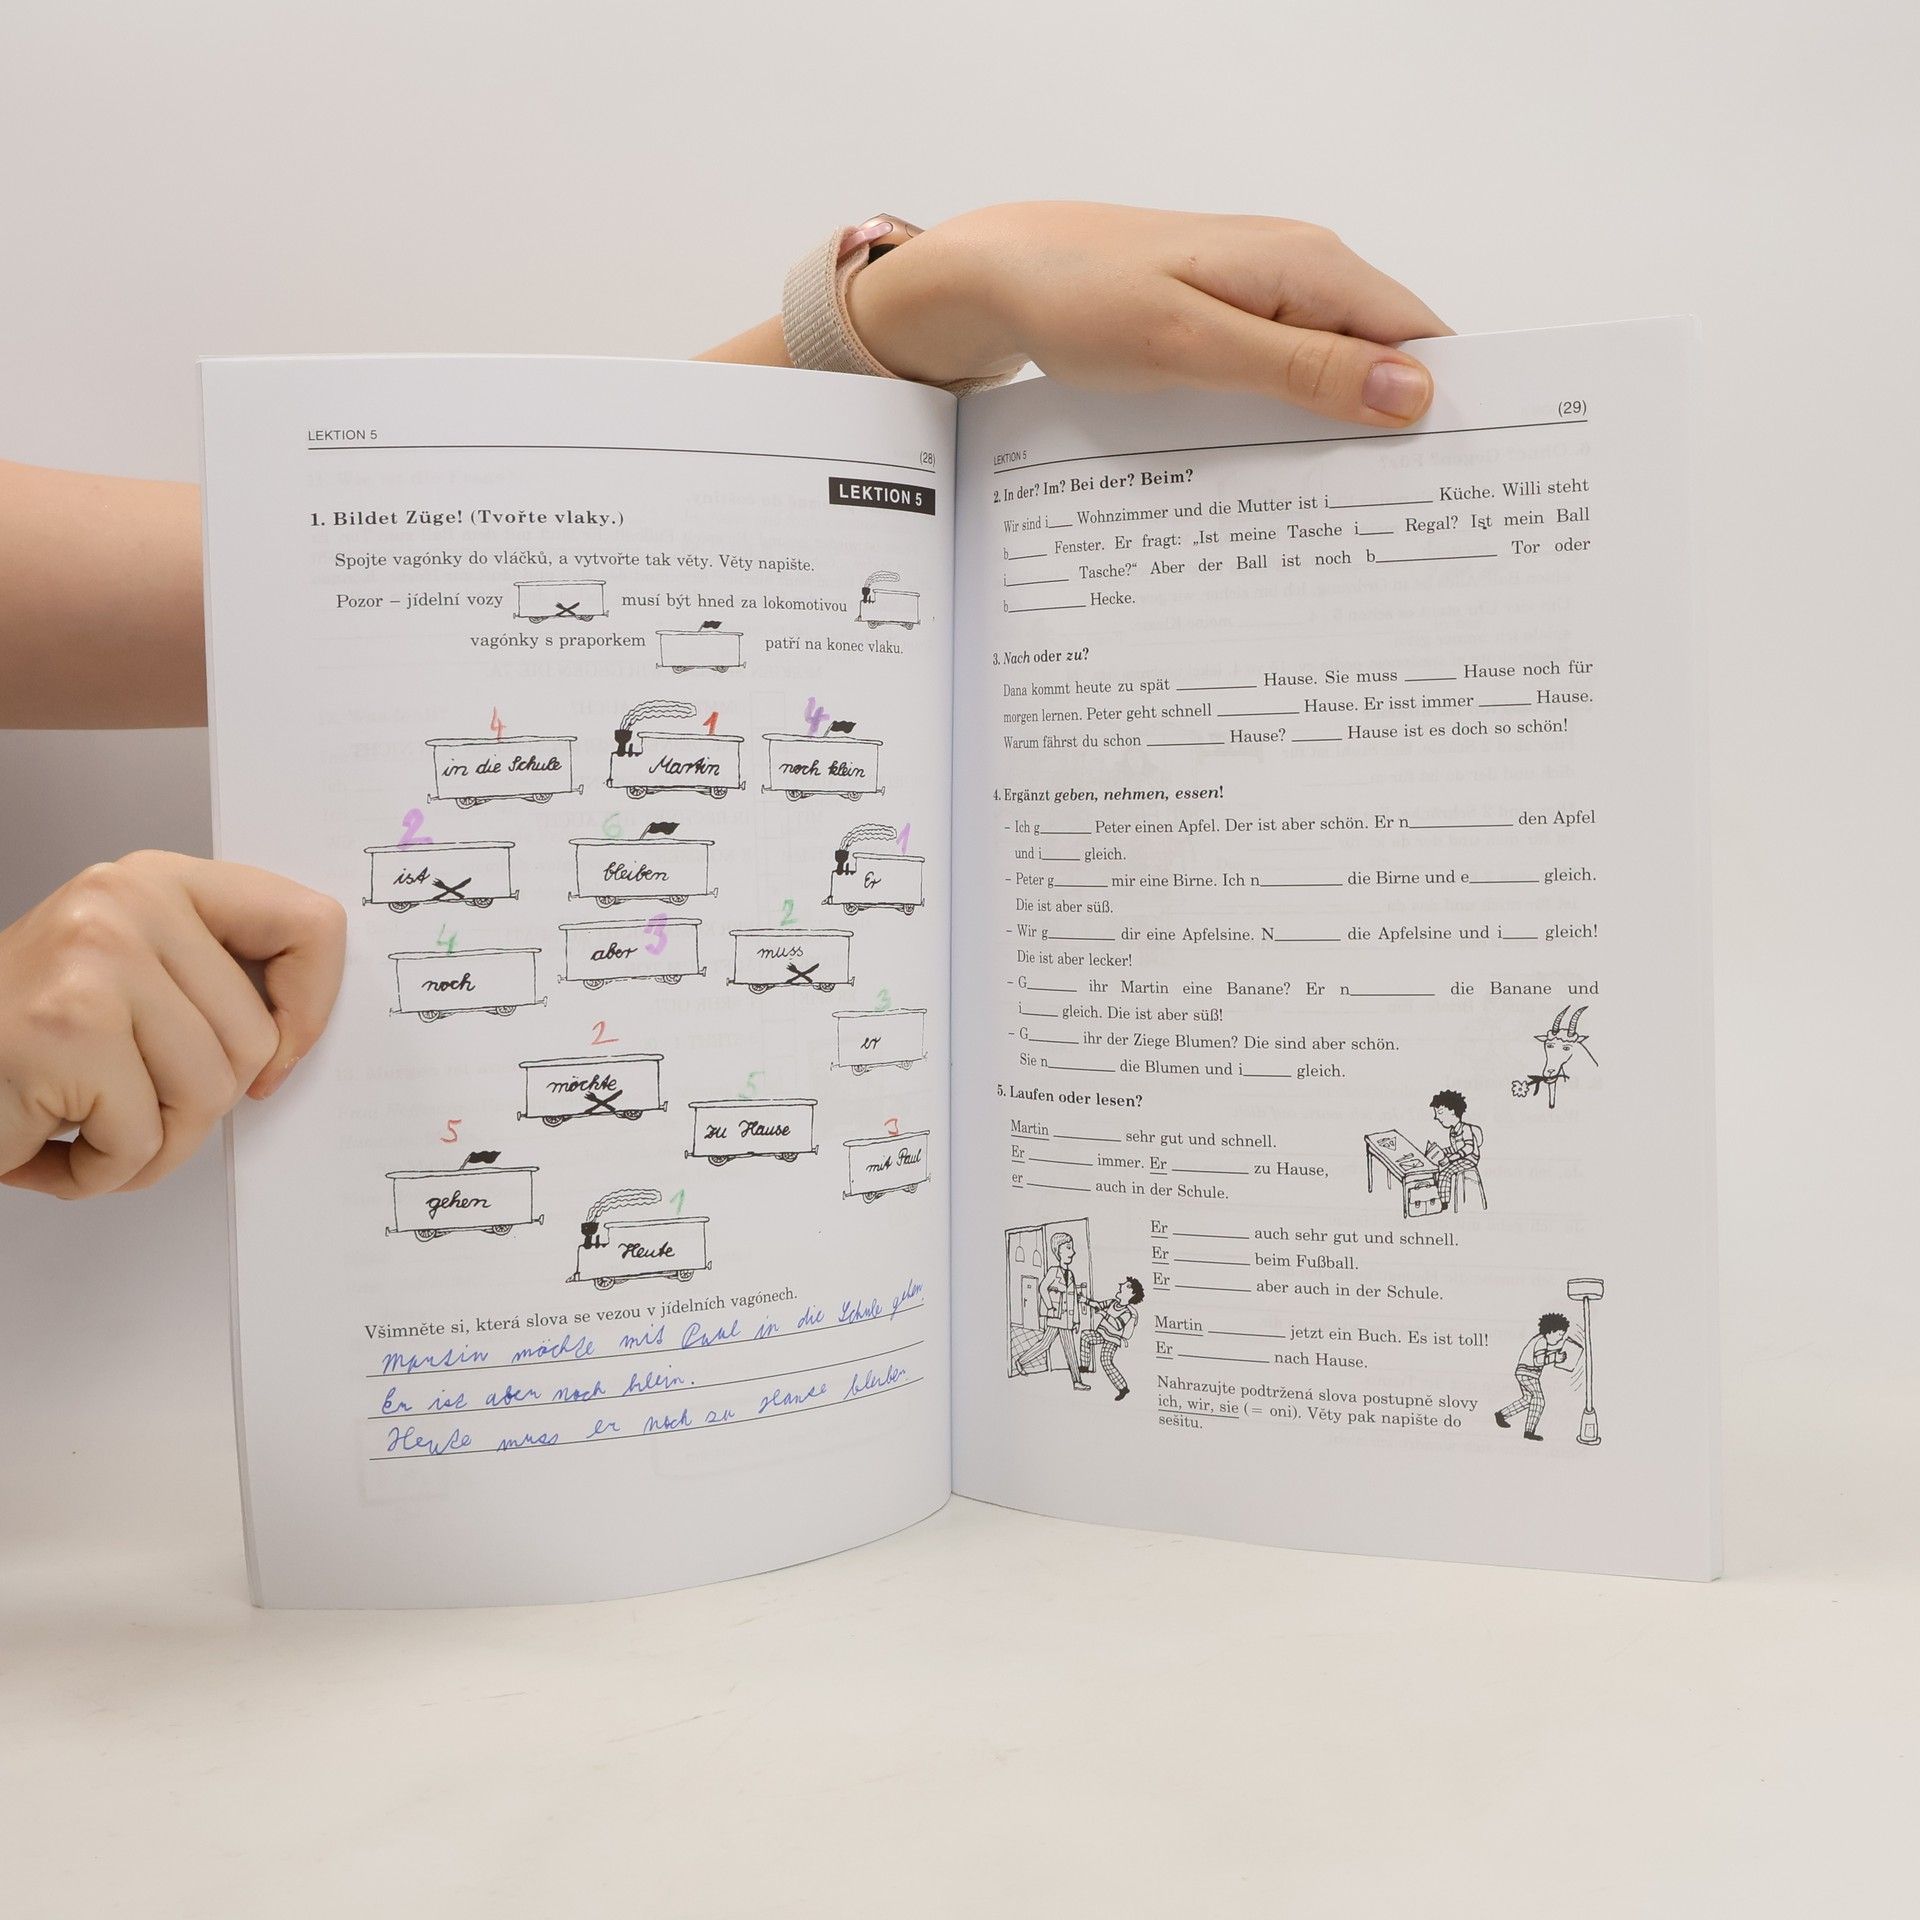 LEKTION 5
(28)
LEKTION 5
1. Bildet Züge! (Tvořte vlaky.)
Spojte vagónky do vláčků, a vytvořte tak věty. Věty napište.
Pozor – jídelní vozy musí být hned za lokomotivou
vagónky s praporkem patří na konec vlaku.
4 1 4
in die Schule Martin noch klein
2 6 1
ist bleiben Er
4 3 2
noch aber muss
2 3
möchte er
5
zu Hause
5 3
gehen mit Paul
1
Heute
Všimněte si, která slova se vezou v jídelních vagónech.
Martin möchte mit Paul in die Schule gehen.
Er ist aber noch klein.
Heute muss er noch zu Hause bleiben.
(29)
LEKTION 5
2. In der? Im? Bei der? Beim?
Wir sind i___ Wohnzimmer und die Mutter ist i___ Küche. Willi steht
b___ Fenster. Er fragt: „Ist meine Tasche i___ Regal? Ist mein Ball
i___ Tasche?“ Aber der Ball ist noch b___ Tor oder
b___ Hecke.
3. Nach oder zu?
Dana kommt heute zu spät ___ Hause. Sie muss ___ Hause noch für
morgen lernen. Peter geht schnell ___ Hause. Er isst immer ___ Hause.
Warum fährst du schon ___ Hause? ___ Hause ist es doch so schön!
4. Ergänzt geben, nehmen, essen!
– Ich g___ Peter einen Apfel. Der ist aber schön. Er n___ den Apfel
und i___ gleich.
– Peter g___ mir eine Birne. Ich n___ die Birne und e___ gleich.
Die ist aber süß.
– Wir g___ dir eine Apfelsine. N___ die Apfelsine und i___ gleich!
Die ist aber lecker!
– G___ ihr Martin eine Banane? Er n___ die Banane und
i___ gleich. Die ist aber süß!
– G___ ihr der Ziege Blumen? Die sind aber schön.
Sie n___ die Blumen und i___ gleich.
5. Laufen oder lesen?
Martin ___ sehr gut und schnell.
Er ___ immer. Er ___ zu Hause,
er ___ auch in der Schule.
Er ___ auch sehr gut und schnell.
Er ___ beim Fußball.
Er ___ aber auch in der Schule.
Martin ___ jetzt ein Buch. Es ist toll!
Er ___ nach Hause.
Nahrazujte podtržená slova postupně slovy
ich, wir, sie (= oni). Věty pak napište do
sešitu.